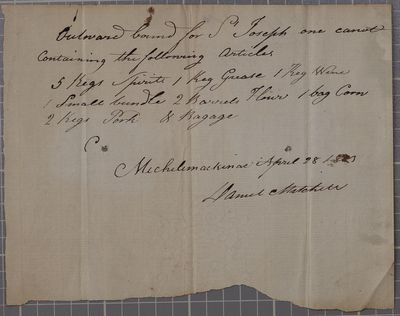 Outward bound for St Joseph one canoe
Containing the following Articles
5 Kegs Spirits 1 Keg Grease 1 Keg Wine
1 Small bundle 2 Barrels Flour 1 bag Corn
2 Kegs Pork & Bagage
Michilimackinac April 28
Daniel Mitchell